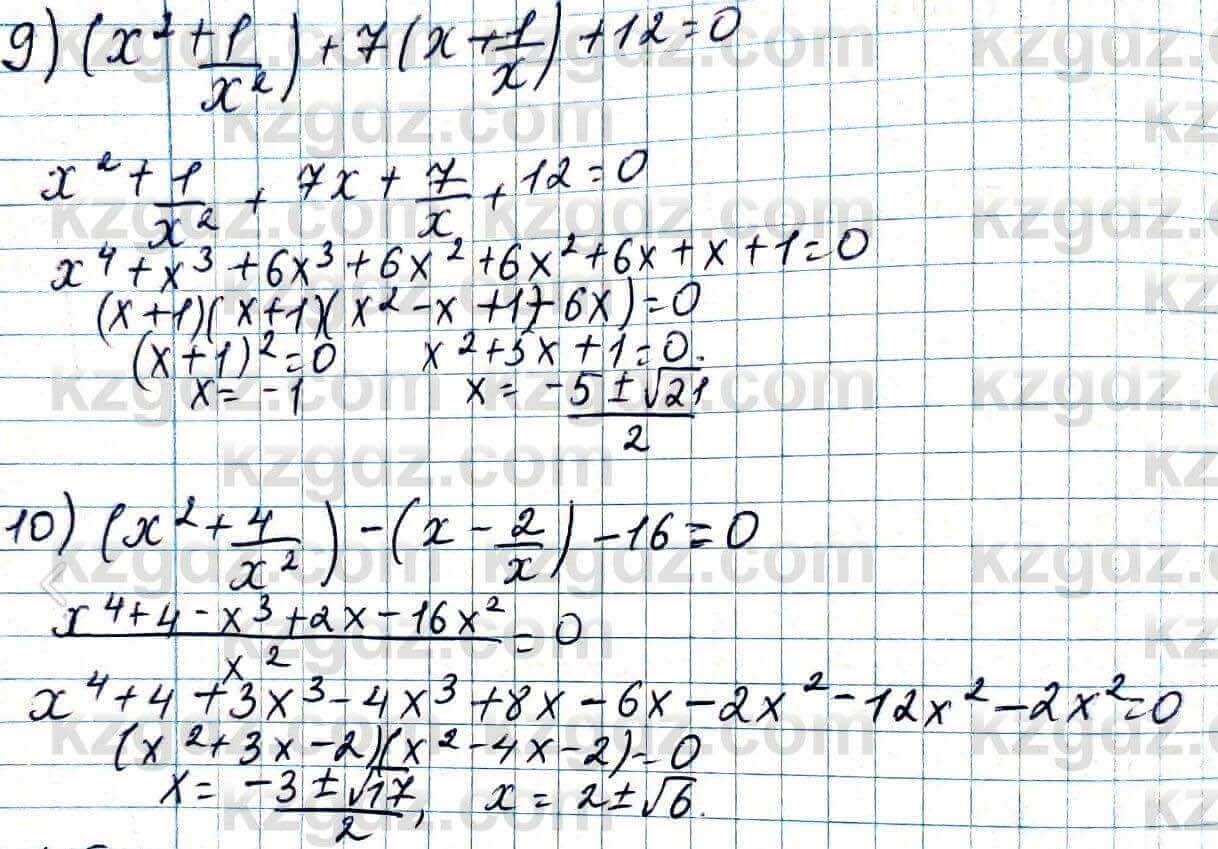 9) (x² + 1/x²) + 7(x + 1/x) + 12 = 0
x² + 1/x² + 7x + 7/x + 12 = 0
x⁴ + x³ + 6x³ + 6x² + 6x² + 6x + x + 1 = 0
(x+1)(x+1)(x² - x + 1) + 6x) = 0
(x+1)² = 0 x² + 5x + 1 = 0.
x = -1 x = (-5 ± √21)/2
10) (x² + 4/x²) - (x - 2/x) - 16 = 0
(x⁴ + 4 - x³ + 2x - 16x²)/x² = 0
x⁴ + 4 + 3x³ - 4x³ + 8x - 6x - 2x² - 12x² - 2x² = 0
(x² + 3x - 2)(x² - 4x - 2) = 0
x = (-3 ± √17)/2, x = 2 ± √6.
kzgdz.com